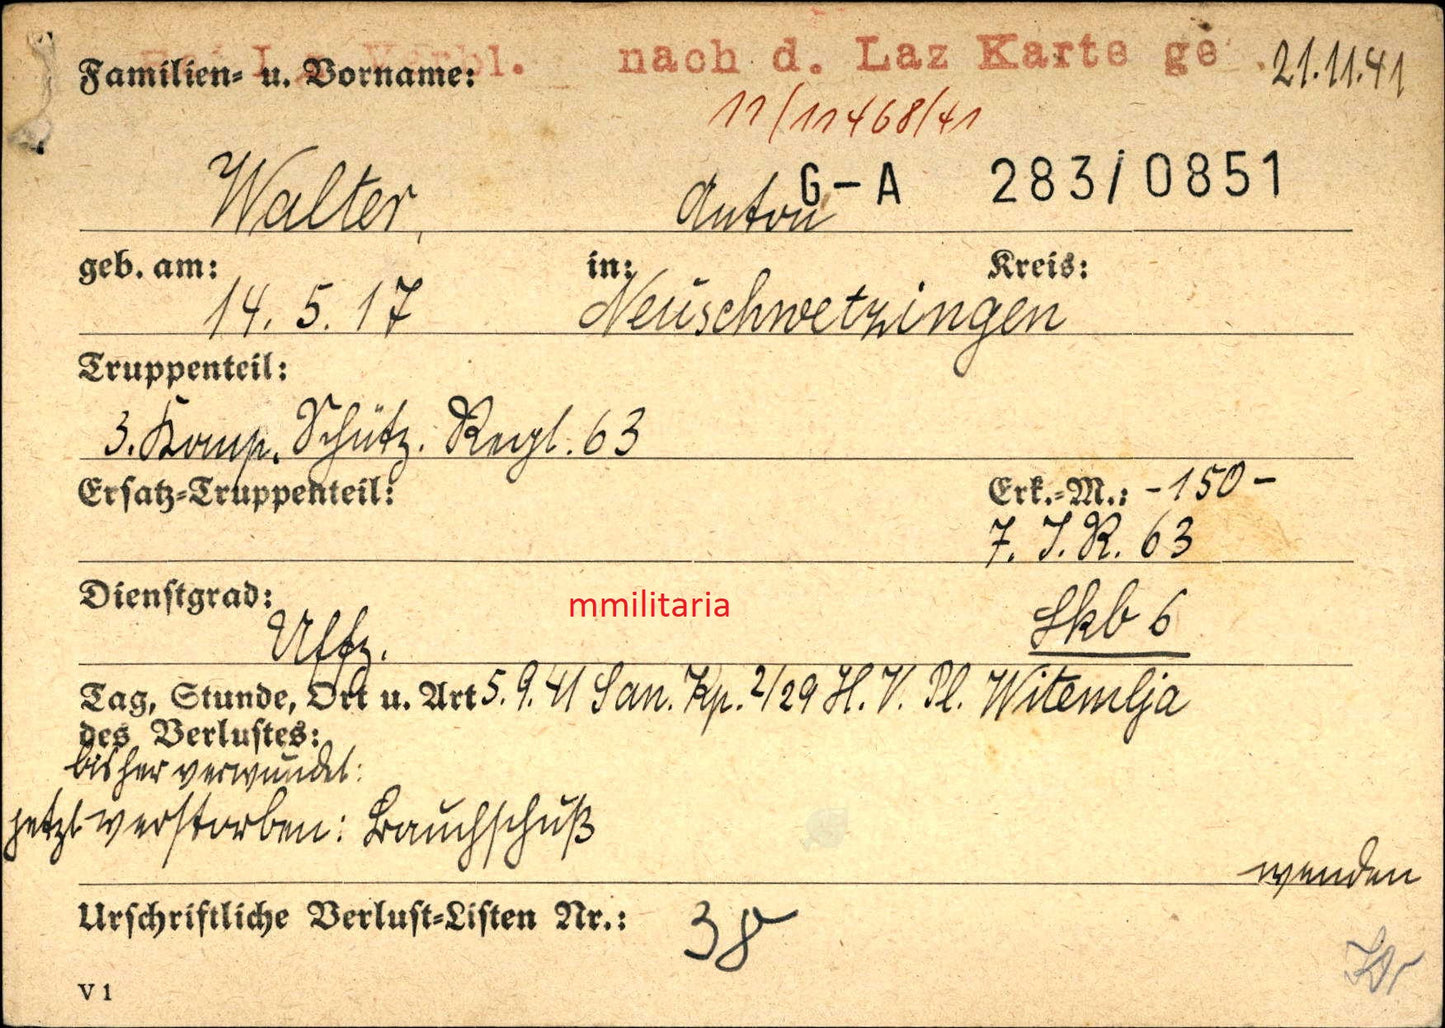 nach d. Laz Karte ge 21.11.41
Familien- u. Vorname:
11/11468/41
G-A 283/0851
Walter, Anton
geb. am: in: Kreis:
14. 5. 17 Neuschwetzingen
Truppenteil:
3. Komp. Schütz. Regt. 63
Ersatz-Truppenteil: Erk.-M.: -150-
7. I.R. 63
Dienstgrad:
Uffz.
mmilitaria
Tag, Stunde, Ort u. Art 5. 9. 41 San. Kp. 2/29 H. V. Pl. Witemlja
des Verlustes:
bisher verwundet:
jetzt verstorben: Bauchschuß
wenden
Urschriftliche Verlust-Listen Nr.: 38
V 1